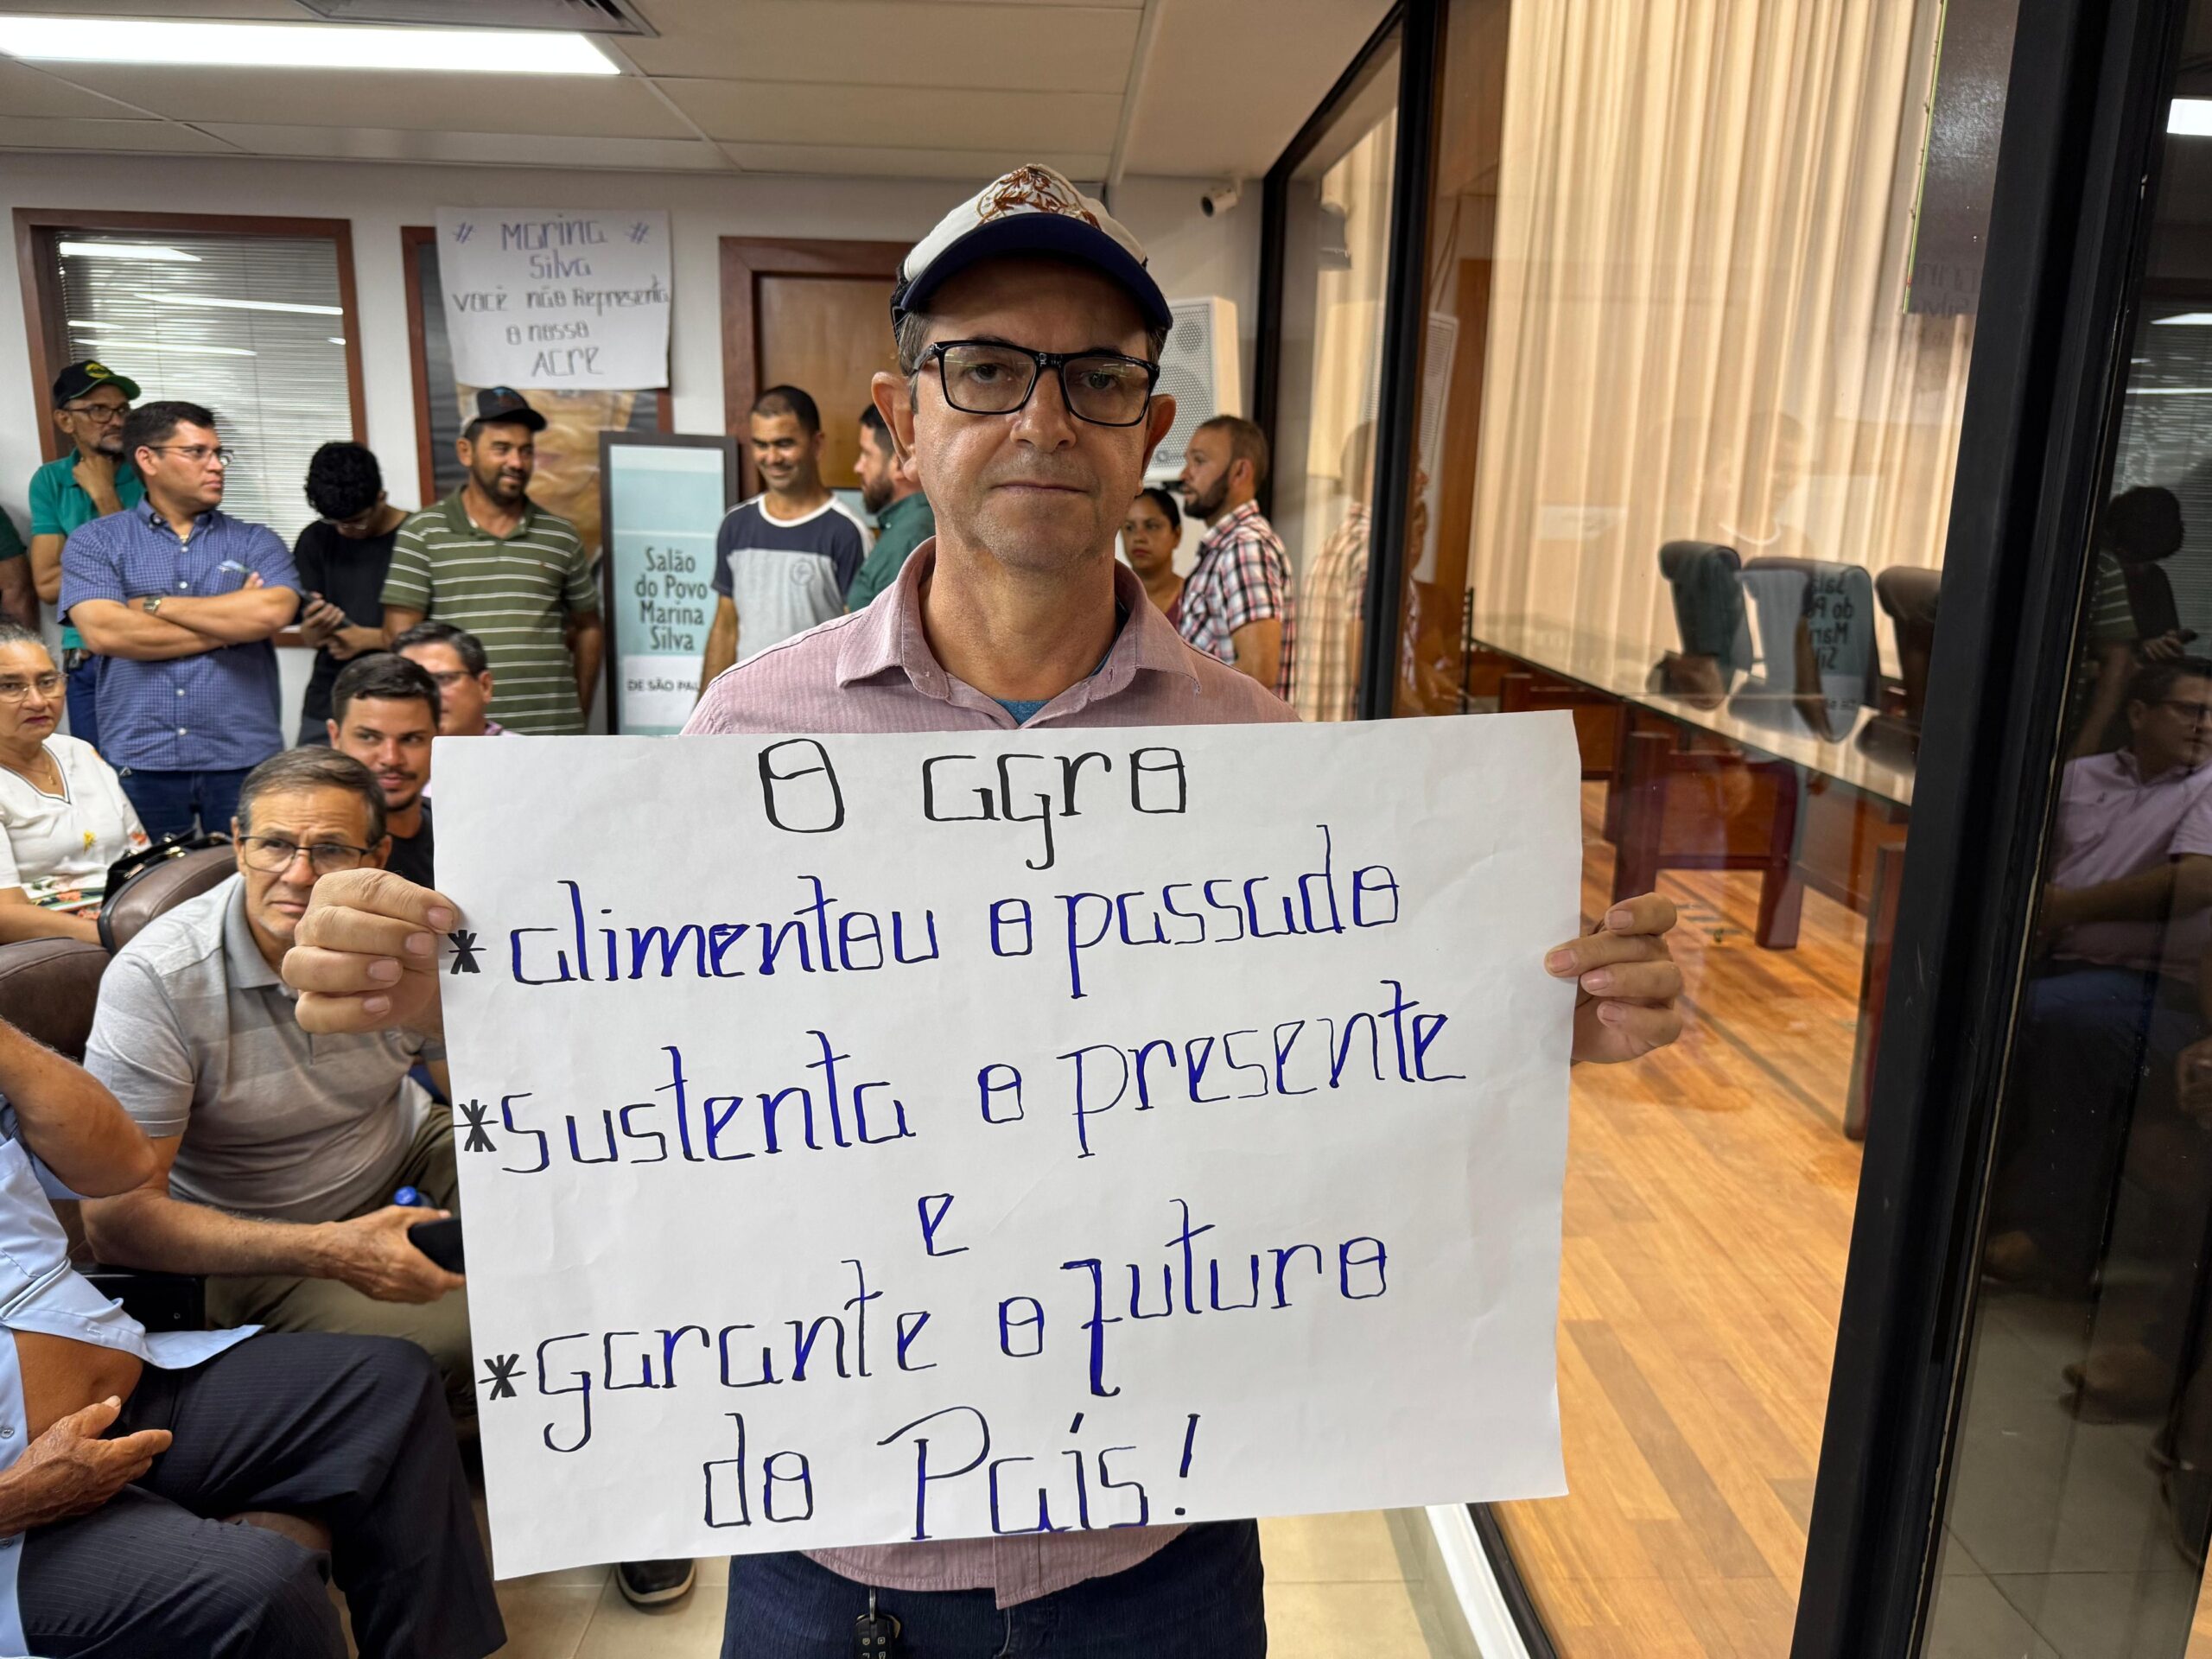 # Marina #
Silva
você não Representa
o nosso
ACRE
Salão
do Povo
Marina
Silva
DE SÃO PAU
O agro
* alimentou o passado
* Sustenta o presente
e
* garante o futuro
do País!